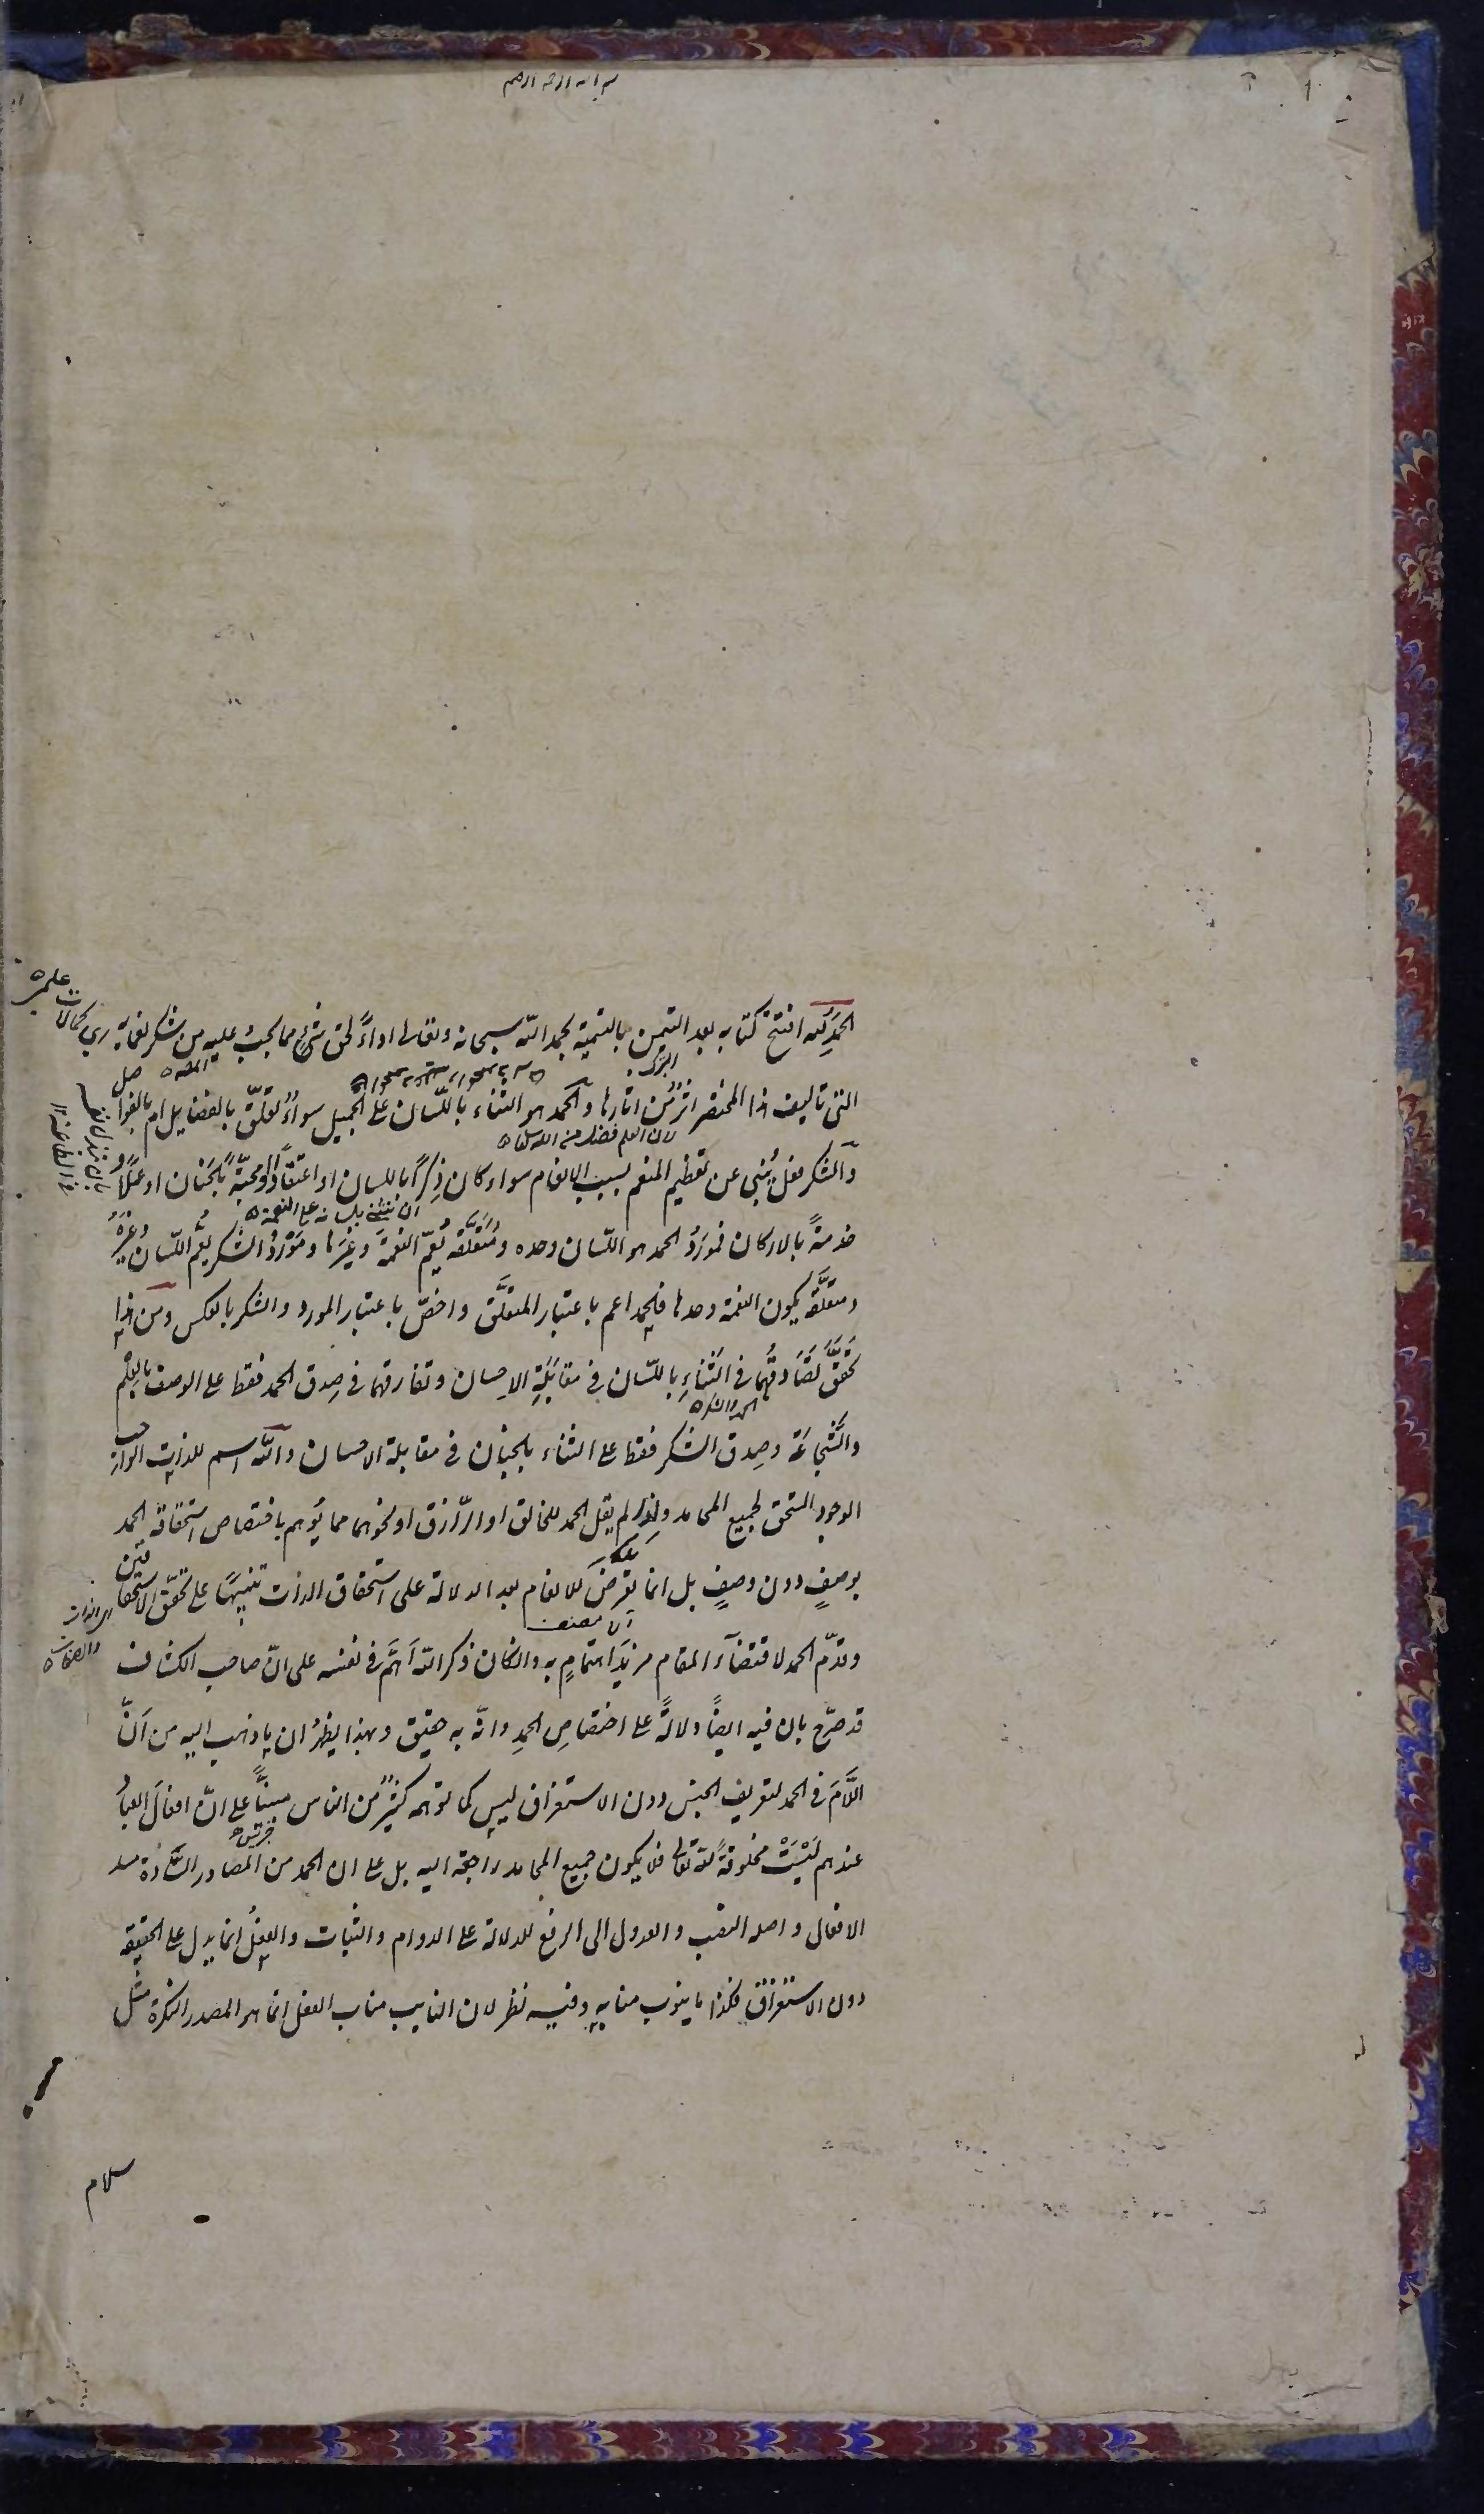 الحمد لله افتتح كتابه بعد التيمن بالتسمية بحمد الله سبحانه وتعالى اداءً لحق شيء مما يجب عليه من شكر نعمايه
التى تاليف هذا المختصر اثرٌ من اثارها والحمد هو الثناء باللسان على الجميل سواءٌ تعلّق بالفضايل ام بالفواضل
والشكر فعل يُنبى عن تعظيم المنعم بسبب الانعام سواء كان ذِكراً باللسان او اعتقاداً ومحبّةً بالجَنان او عملاً و
خدمةً بالاركان فمورَدُ الحمد هو اللسان وحده ومُتعلَّقه يَعُمّ النعمةَ وغيرَها ومَوْرِدُ الشكر يعُمّ اللسان وغيرَهُ
ومتعلَّقه يكون النعمة وحدها فالحمد اعم باعتبار المتعلَّق واخصّ باعتبار المورد والشكر بالعكس ومن هذا
تحقَّقَ تَصَادقُهُما فى الثناءِ باللسان فى مقابَلَةِ الاحسان وتفارقهما فى صِدق الحمد فقط على الوصف بالعِلْم
والشَّجاعة وصِدق الشكر فقط على الثناء بالجنان فى مقابلة الاحسان والله اسم للذات الواجب
الوجود المستحق لجميع المحامد ولذا لم يقل الحمد للخالق او الرّازق او نحوهما مما يُوهم باختصاص استحقاقه الحمد
بوصفٍ دون وصفٍ بل انما تعرّضَ للانعام بعد الدلالة على استحقاق الذات تنبيهًا على تحقّق الاستحقاقين
وقدّم الحمد لاقتضآء المقام مزيدَ اهتمامٍ به وانكان ذكر الله اَهَمَّ فى نفسه على انّ صاحب الكشاف
قد صرّح بان فيه ايضًا دلالةً على اختصاصِ الحمدِ وانّه به حقيق وبهذا يظهرُ ان ما ذهب اليه من اَنّ
اللّامَ فى الحمد لتعريف الجنس دون الاستغراق ليس كما توهمه كثيرٌ من الناس مبنيًّا على انّ افعالَ العبادِ
عندهم لَيْسَتْ مخلوقةً لله تعالى فلا يكون جميع المحامد راجعة اليه بل على ان الحمد من المصادر السَّادّة مسد
الافعال واصله النصب والعدول الى الرفع للدلالة على الدوام والثبات والفعلُ انما يدل على الحقيقة
دون الاستغراق فكذا ما ينوب منابه وفيه نظر لان النايب مناب الفعل انما هو المصدر النكرة مثل
سلام